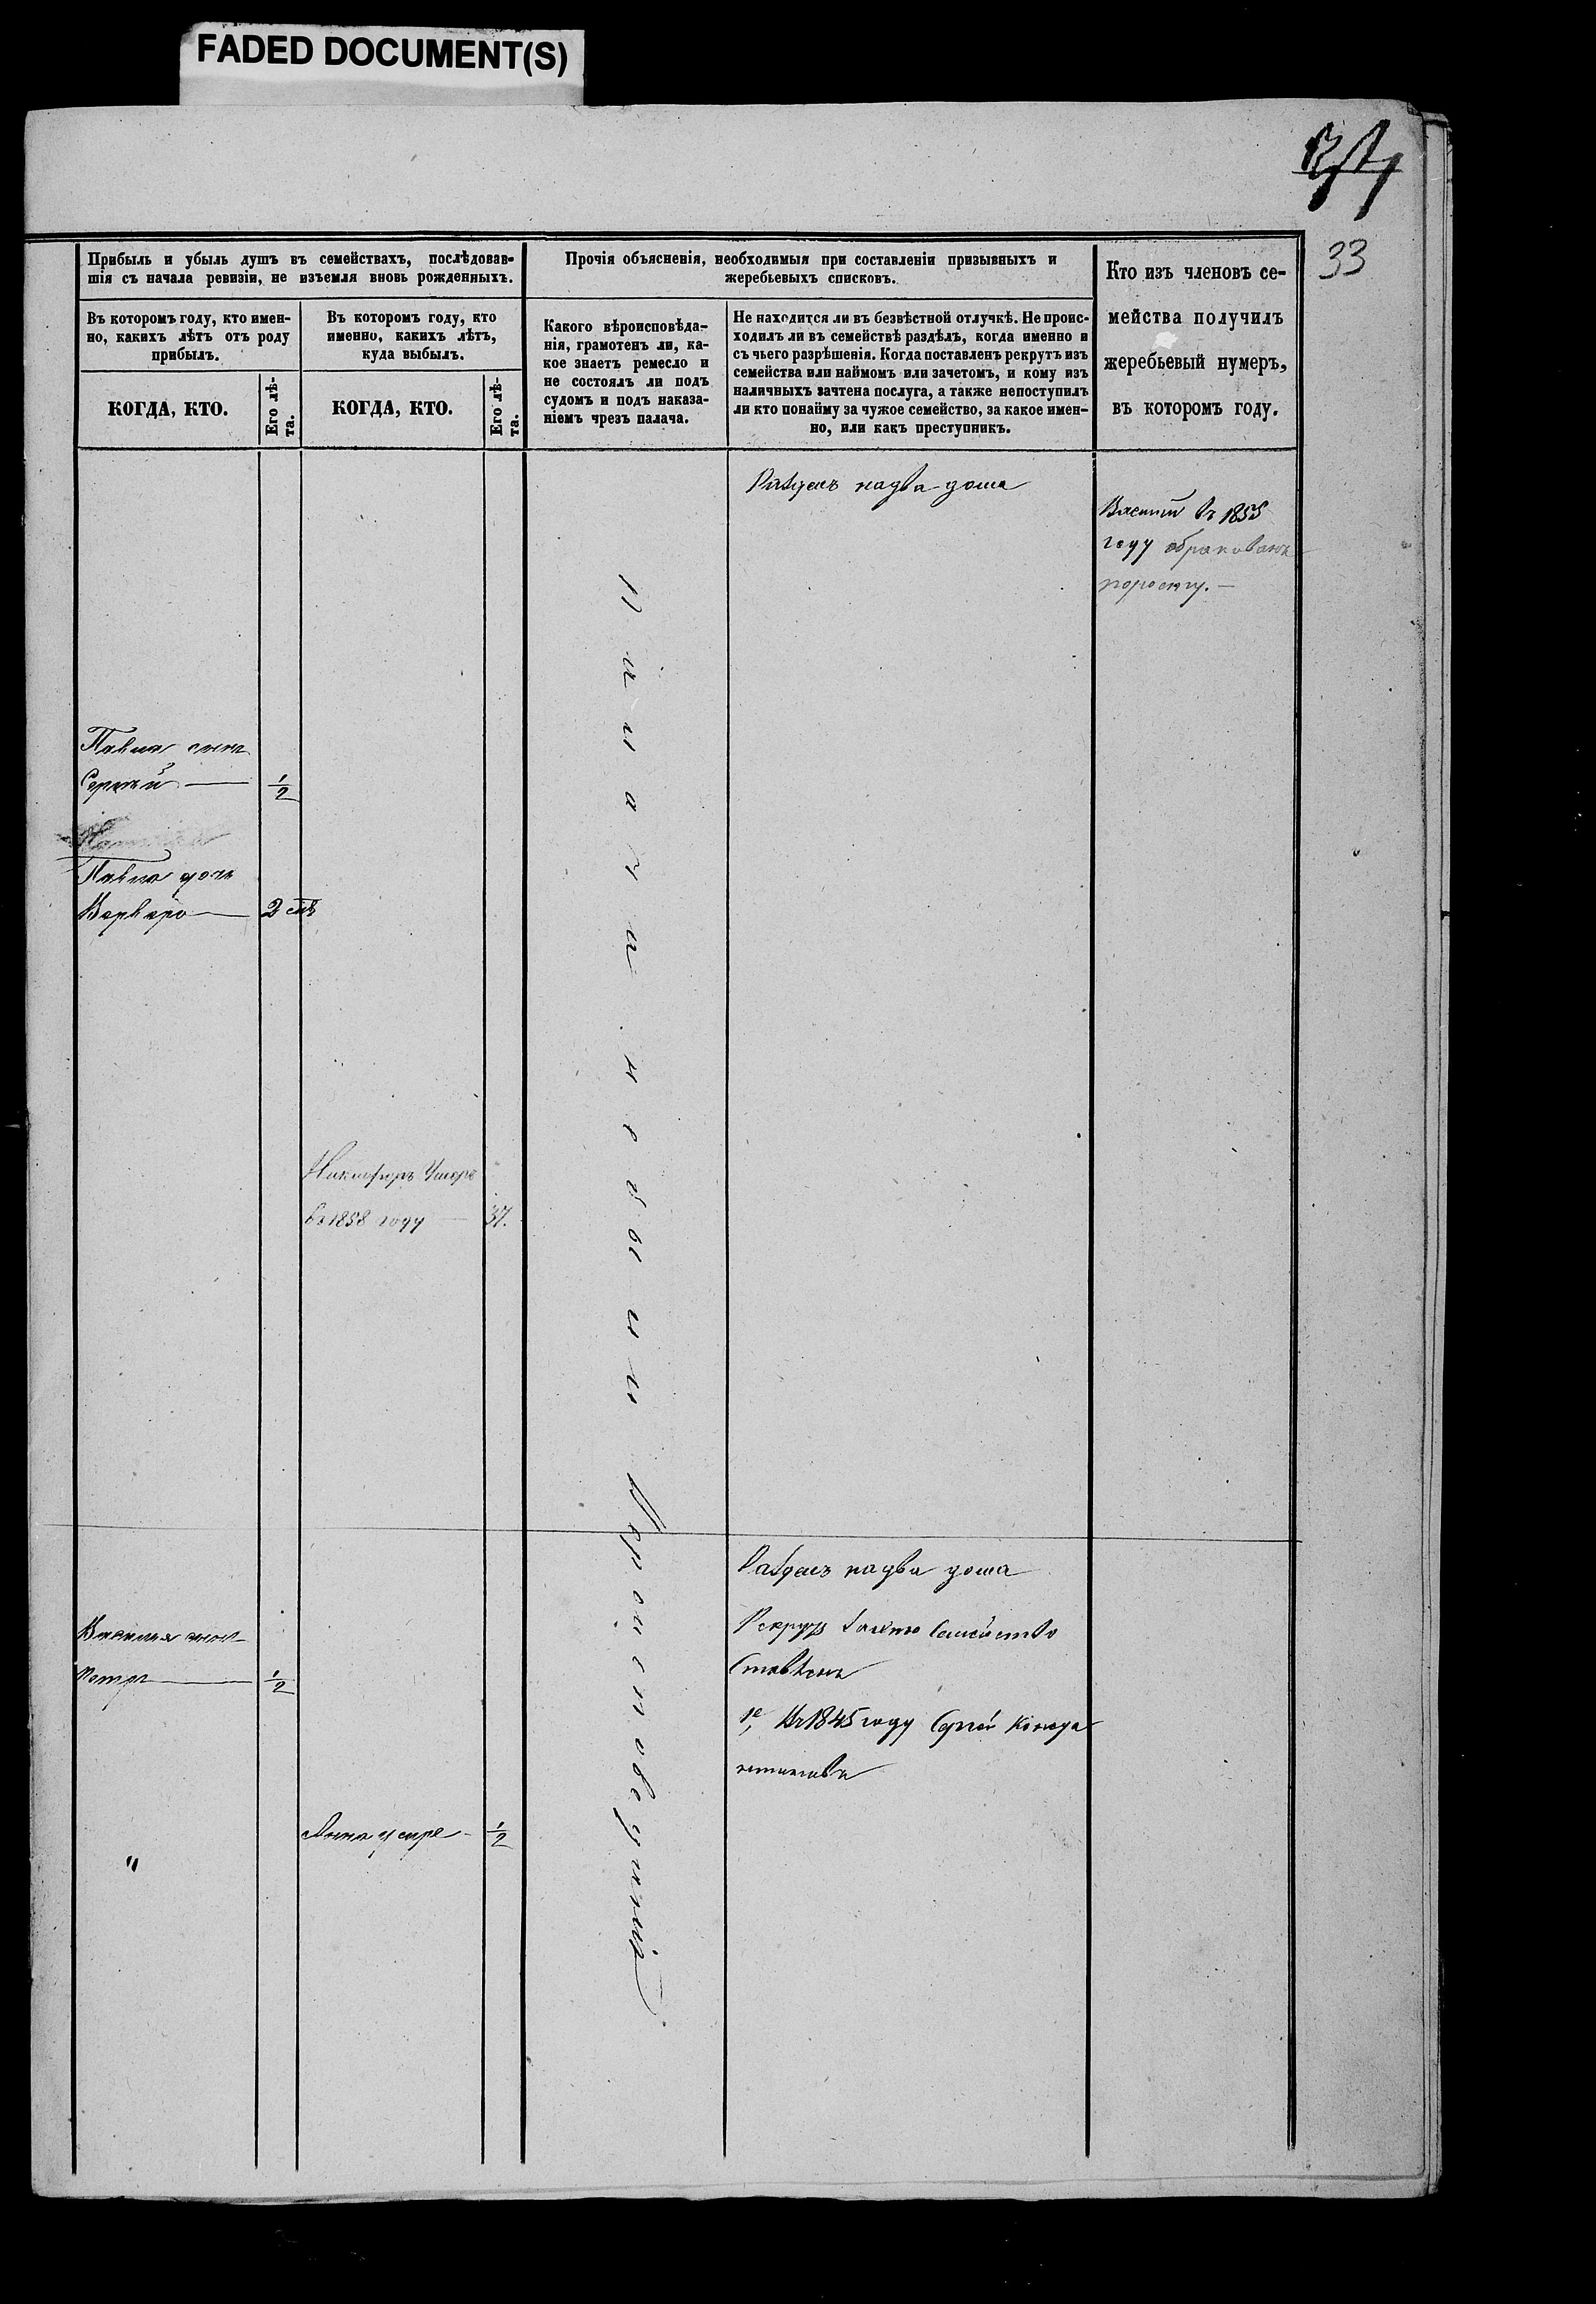 FADED DOCUMENT(S)
33
Прибыль и убыль душъ въ семействахъ, послѣдовав-
шія съ начала ревизіи, не изъемля вновь рожденныхъ.
Прочія объясненія, необходимыя при составленіи призывныхъ и
жеребьевыхъ списковъ.
Кто изъ членовъ се-
мейства получилъ
жеребьевый нумеръ,
въ которомъ году.
Въ которомъ году, кто имен-
но, какихъ лѣтъ отъ роду
прибылъ.
Въ которомъ году, кто
именно, какихъ лѣтъ,
куда выбылъ.
Какого вѣроисповѣда-
нія, грамотенъ ли, ка-
кое знаетъ ремесло и
не состоялъ ли подъ
судомъ и подъ наказа-
ніемъ чрезъ палача.
Не находится ли въ безвѣстной отлучкѣ. Не проис-
ходилъ ли въ семействѣ раздѣлъ, когда именно и
съ чьего разрѣшенія. Когда поставленъ рекрутъ изъ
семейства или наймомъ или зачетомъ, и кому изъ
наличныхъ зачтена послуга, а также непоступилъ
ли кто понайму за чужое семейство, за какое имен-
но, или какъ преступникъ.
КОГДА, КТО.
Его лѣ-
та.
КОГДА, КТО.
Его лѣ-
та.
Раздел надва дома
Василий въ 1855
году обракованъ
поросту. —
Павла сынъ
Сергѣй — 1/2
Павла дочь
Варвара — 2
Никифоръ Умеръ
въ 1858 году — 37.
Раздел надва дома
Василья сынъ
Петръ — 1/2
Рекрутъ Семейство
1е, Въ 1845 году Сергей
Анна умре — 1/2
"